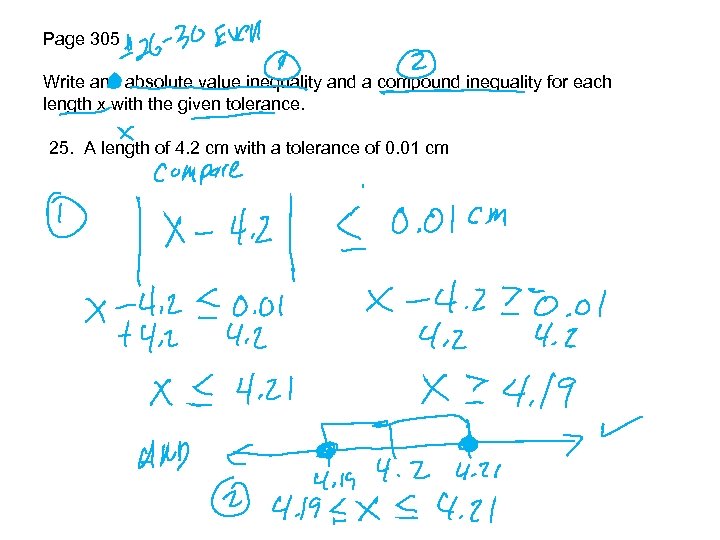 Page 305 # 26-30 EVEN
① ②
Write an absolute value inequality and a compound inequality for each
length x with the given tolerance.
x
25. A length of 4.2 cm with a tolerance of 0.01 cm
Compare
① |x - 4.2| ≤ 0.01 cm
x - 4.2 ≤ 0.01 x - 4.2 ≥ -0.01
+4.2 4.2 4.2 4.2
x ≤ 4.21 x ≥ 4.19
AND
4.19 4.2 4.21
② 4.19 ≤ x ≤ 4.21